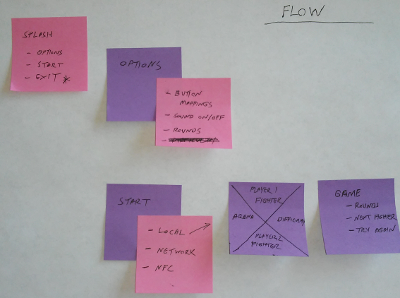 FLOW
SPLASH
- OPTIONS
- START
- EXIT *
OPTIONS
- BUTTON
MAPPINGS
- SOUND ON/OFF
- ROUNDS
START
- LOCAL
- NETWORK
- NFC
PLAYER 1
FIGHTER
ARENA
PLAYER 2
FIGHTER
GAME
- ROUNDS
- NEXT MEMBER
- TRY AGAIN